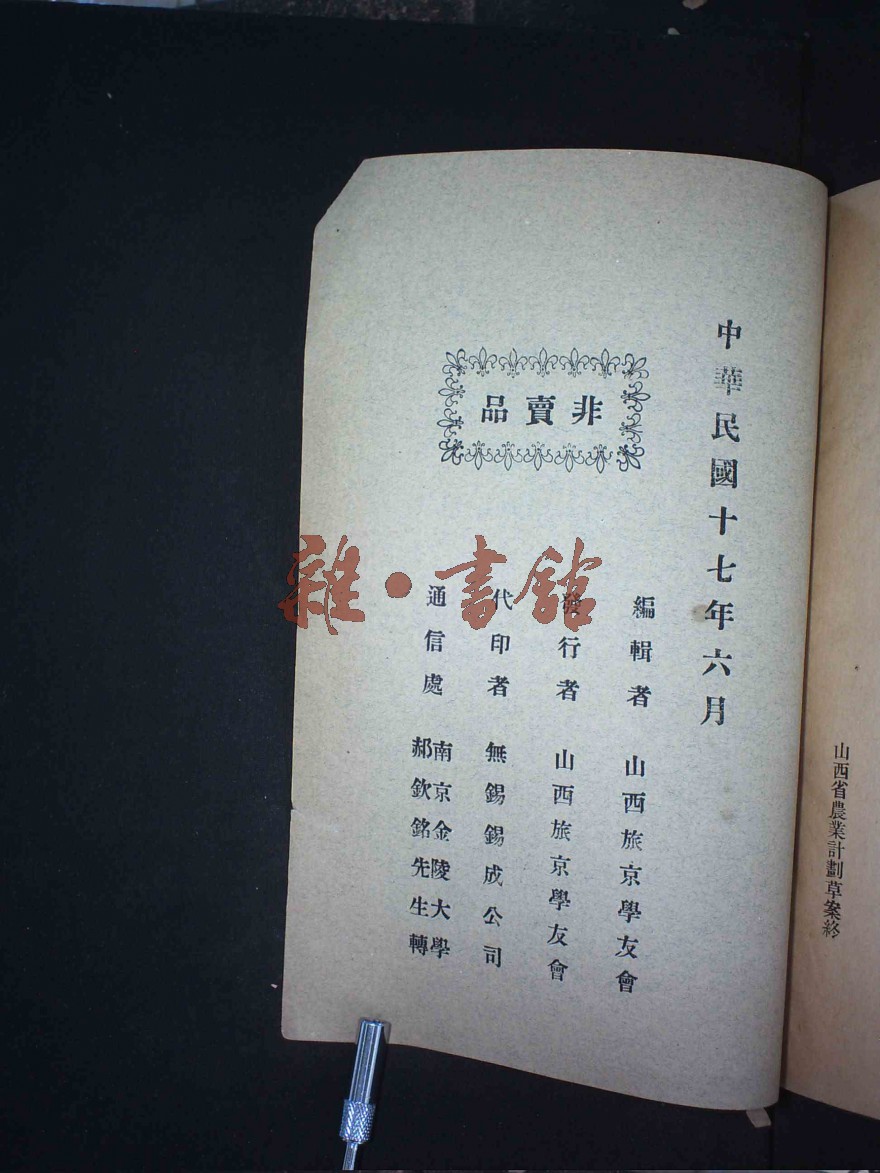 山西省農業計劃草案終
中華民國十七年六月
非賣品
編輯者 山西旅京學友會
發行者 山西旅京學友會
代印者 無錫錫成公司
通信處 南京金陵大學
郝欽銘先生轉
雜·書館